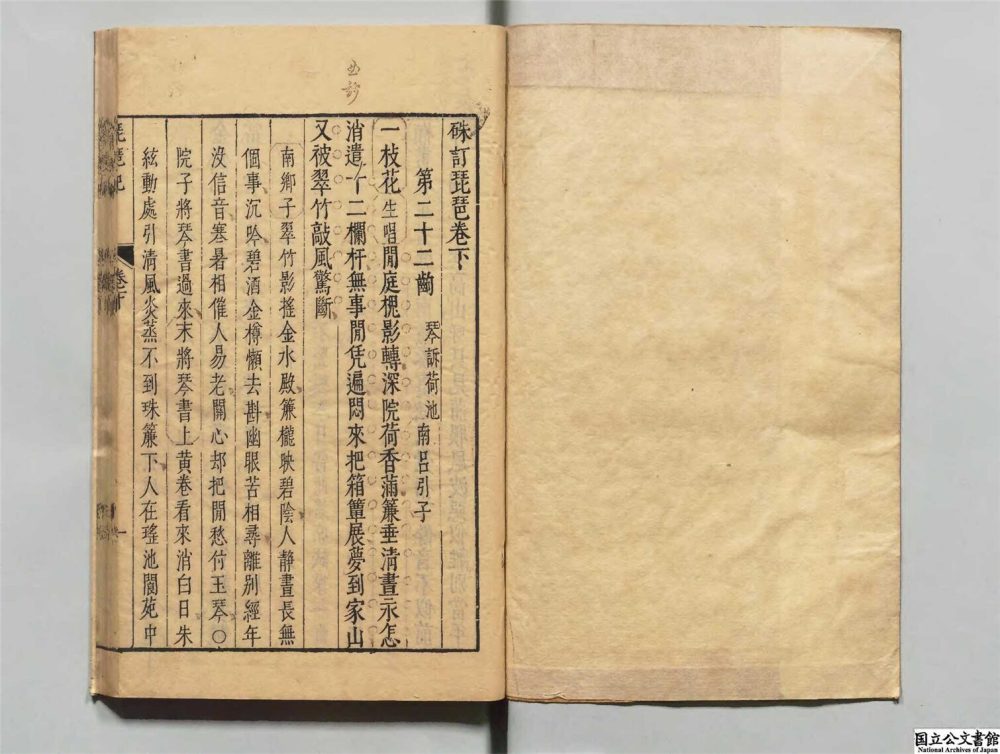 硃訂琵琶卷下
第二十二齣 琴訴荷池 南呂引子
一枝花生唱閒庭槐影轉深院荷香滿簾垂清晝永怎
消遣十二欄杆無事閒凭遍悶來把箱簟展夢到家山
又被翠竹敲風驚斷
南鄉子翠竹影搖金水殿簾櫳映碧陰人靜晝長無
個事沉吟碧酒金樽懶去斟幽眼苦相尋離別經年
沒信音寒暑相催人易老關心却把閒愁付玉琴○
院子將琴書過來末將琴書上黃卷看來消白日朱
絃動處引清風炎蒸不到珠簾下人在瑤池閬苑中
琵琶記 卷下 一
国立公文書館
National Archives of Japan